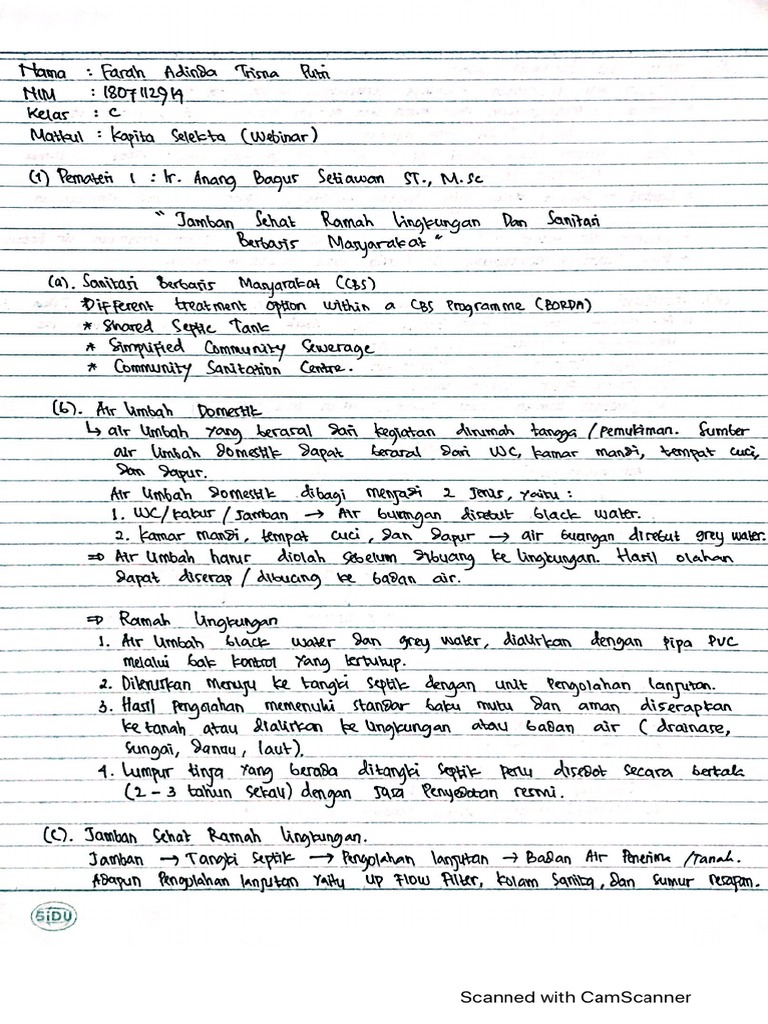 Nama : Farah Adinda Trisna Putri
NIM : 1807112914
Kelas : C
Matkul : Kapita Selekta (Webinar)
(1) Pemateri 1 : Ir. Anang Bagus Setiawan ST., M.Sc
" Jamban Sehat Ramah Lingkungan Dan Sanitasi
Berbasis Masyarakat "
(a). Sanitasi Berbasis Masyarakat (CBS)
*Different treatment option within a CBS Programme (BORDA)
* Shared Septic Tank
* Simplified Community Sewerage
* Community Sanitation Centre.
(b). Air Limbah Domestik
↳ air limbah yang berasal dari kegiatan dirumah tangga / pemukiman. Sumber
air limbah domestik dapat berasal dari WC, kamar mandi, tempat cuci,
dan dapur.
Air limbah domestik dibagi menjadi 2 jenis, yaitu :
1. WC/kakus/jamban → Air buangan disebut black water.
2. kamar mandi, tempat cuci, dan dapur → air buangan disebut grey water.
⇒ Air limbah harus diolah sebelum dibuang ke lingkungan. Hasil olahan
dapat diserap / dibuang ke badan air.
⇒ Ramah Lingkungan
1. Air limbah black water dan grey water, dialirkan dengan pipa PVC
melalui bak kontrol yang tertutup.
2. Diteruskan menuju ke tangki septik dengan unit pengolahan lanjutan.
3. Hasil pengolahan memenuhi standar baku mutu dan aman diserapkan
ke tanah atau dialirkan ke lingkungan atau badan air ( drainase,
sungai, danau, laut).
4. Lumpur tinja yang berada ditangki septik perlu disedot secara berkala
(2 - 3 tahun sekali) dengan jasa penyedotan resmi.
(c). Jamban Sehat Ramah Lingkungan.
Jamban → Tangki septik → Pengolahan lanjutan → Badan Air Penerima /Tanah.
Adapun pengolahan lanjutan yaitu up Flow Filter, kolam Sanita, dan sumur resapan.
SiDU
Scanned with CamScanner